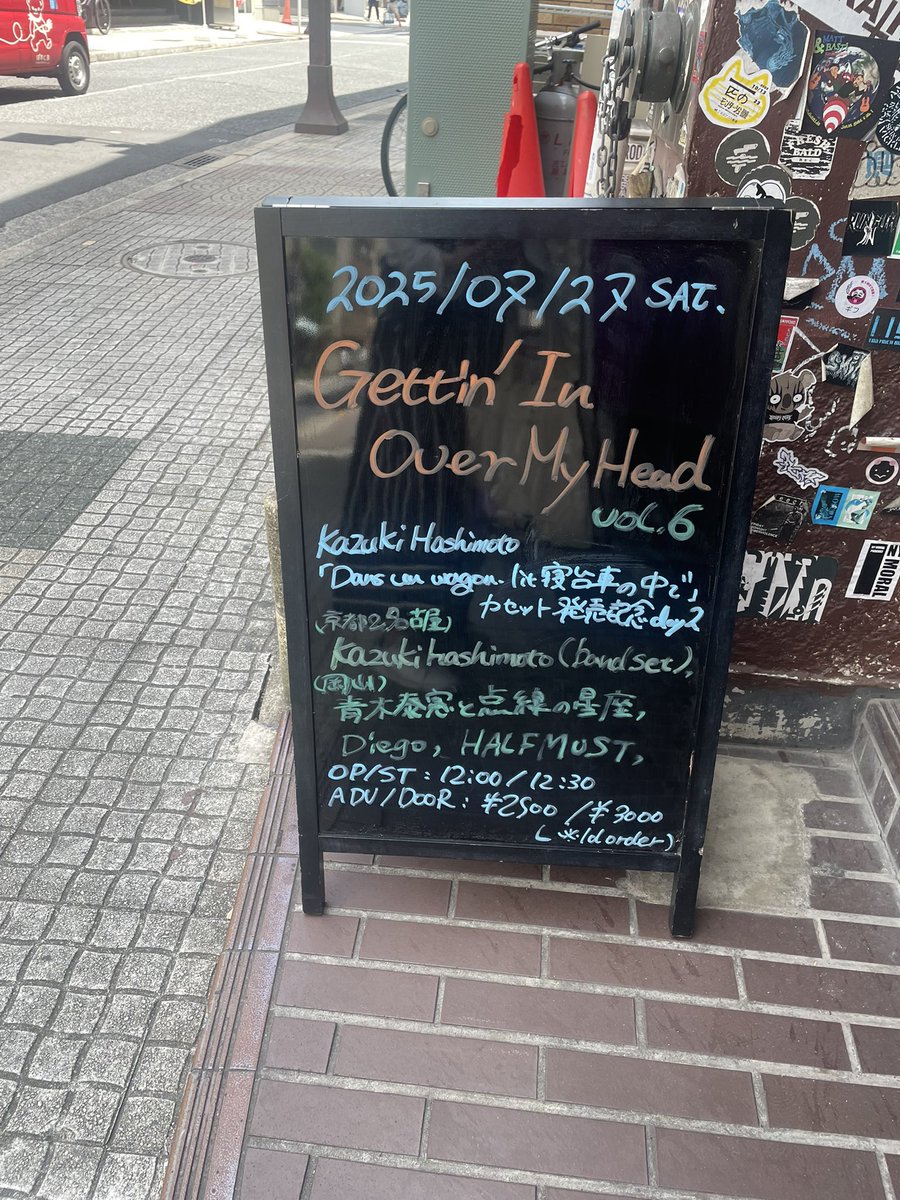 2025/07/27 SAT.
Gettin' In
Over My Head
vol.6
Kazuki Hashimoto
「Dans un wagon-lit 寝台車の中で」
カセット発売記念 day2
Kazuki Hashimoto (band set),
(岡山)
青木泰寛と点線の星座,
Diego, HALFMUST,
OP/ST : 12:00 / 12:30
ADV/DOOR : ¥2500 / ¥3000
└ ※1d order)
MATT
& BAST
FRESH
BALD
MORAL